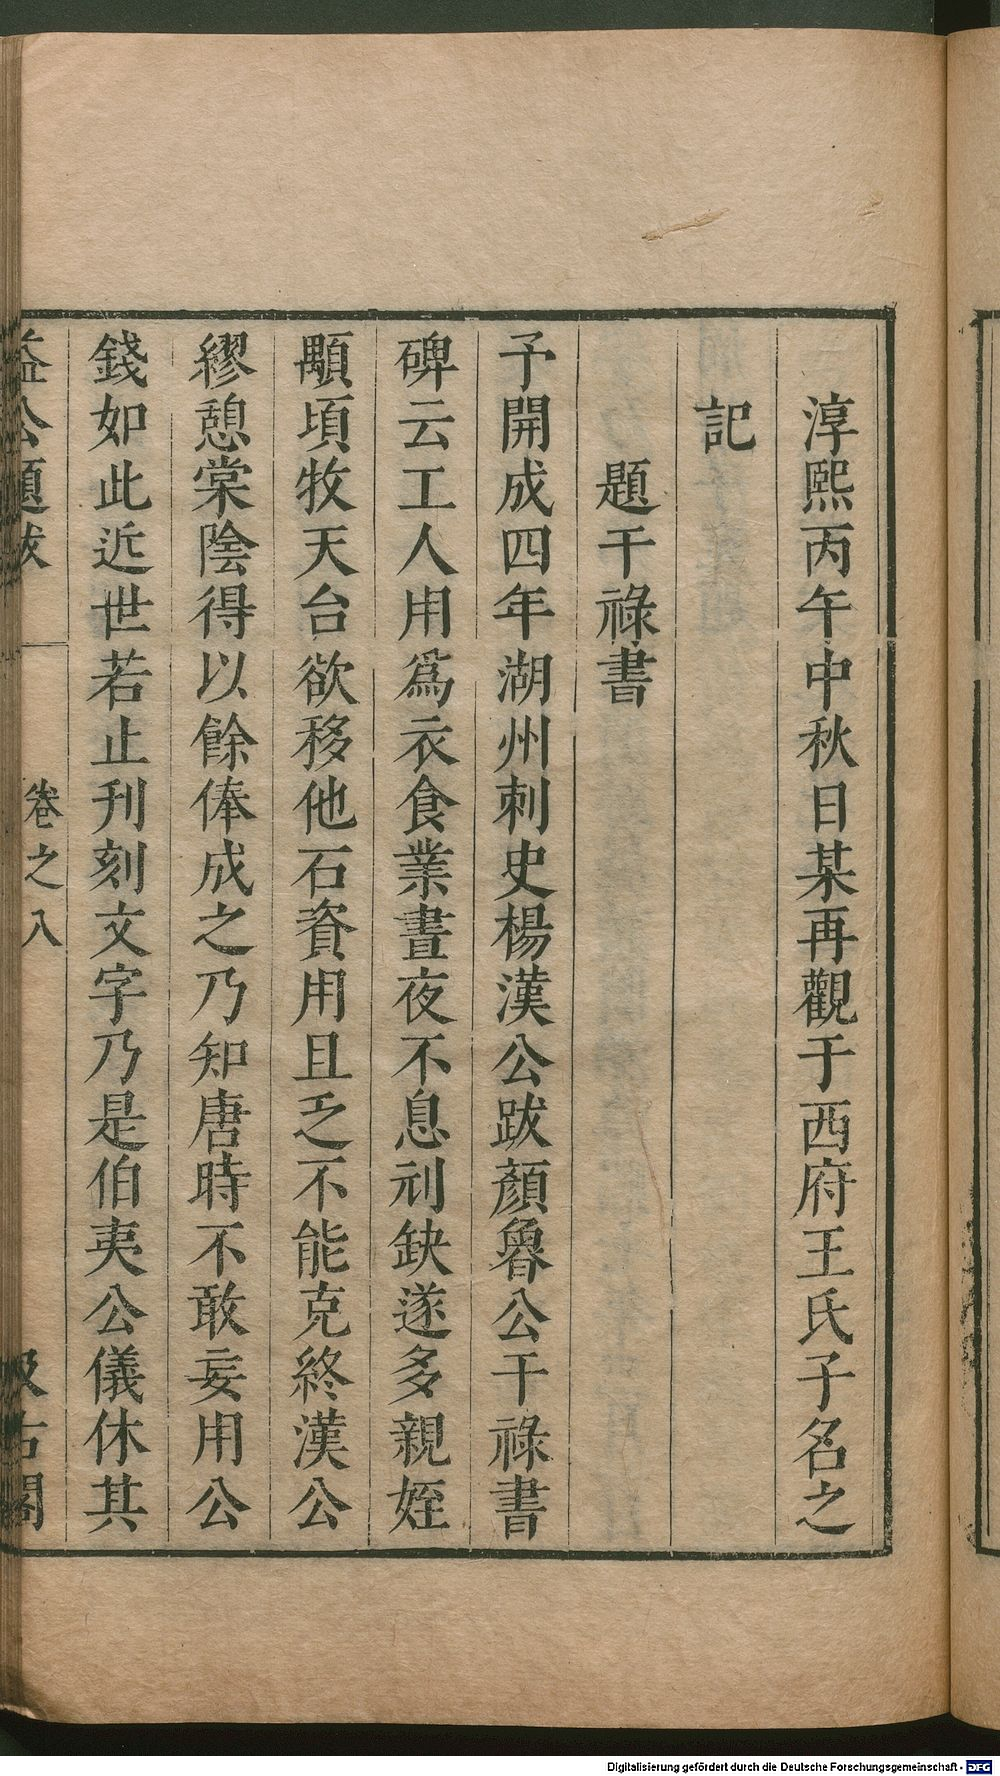 淳熙丙午中秋日某再觀于西府王氏子名之
記
題干祿書
予開成四年湖州刺史楊漢公跋顏魯公干祿書
碑云工人用爲衣食業晝夜不息刓缺遂多親姪
顒頃牧天台欲移他石資用且乏不能克終漢公
繆憩棠陰得以餘俸成之乃知唐時不敢妄用公
錢如此近世若止刊刻文字乃是伯夷公儀休其
益公題跋
卷之八
汲古閣
Digitalisierung gefördert durch die Deutsche Forschungsgemeinschaft - DFG